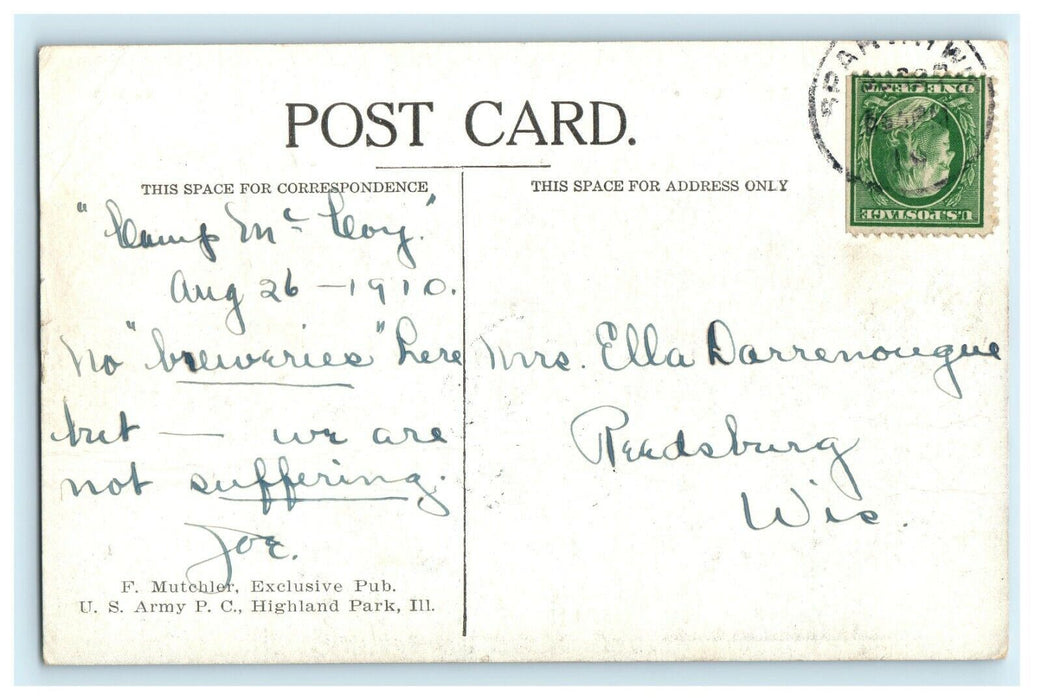 POST CARD.
THIS SPACE FOR CORRESPONDENCE
THIS SPACE FOR ADDRESS ONLY
ONE CENT
U.S. POSTAGE
SPARTA, WIS
"Camp Mc Coy."
Aug 26 - 1910.
No "breweries" here
but — we are
not suffering.
Joe.
Mrs. Ella Darrenougue
Reedsburg
Wis.
F. Mutchler, Exclusive Pub.
U. S. Army P. C., Highland Park, Ill.